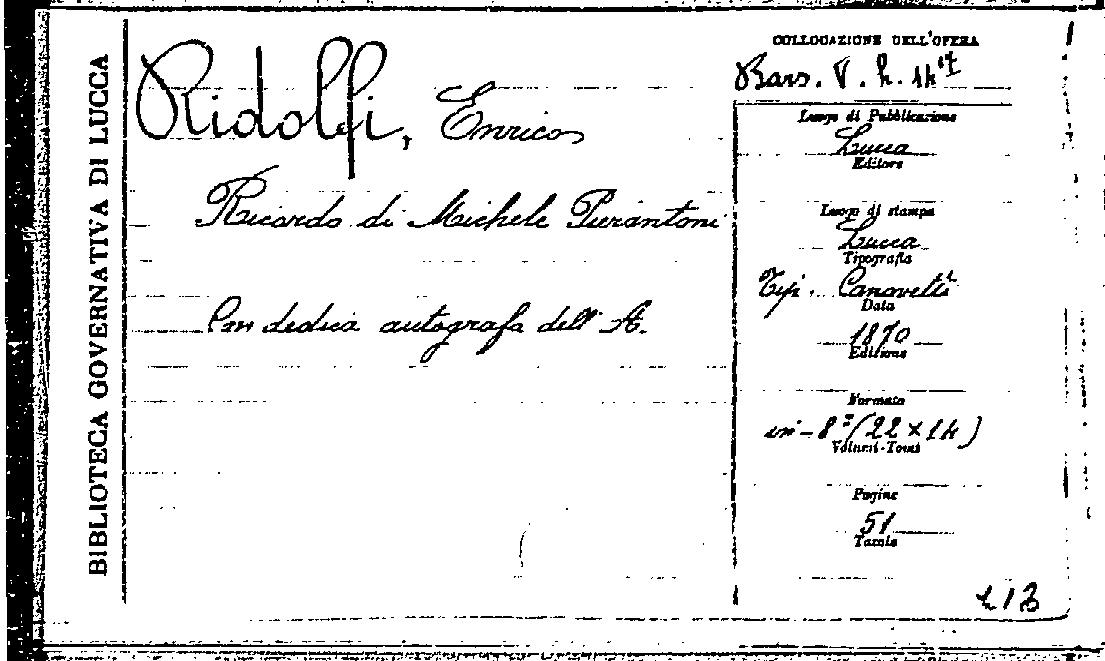 BIBLIOTECA GOVERNATIVA DI LUCCA
Ridolfi, Enrico
Ricordo di Michele Pierantoni
Con dedica autografa dell'A.
COLLOCAZIONE DELL'OPERA
Bars. V. h. 14
Luogo di Pubblicazione
Lucca
Editore
Luogo di stampa
Lucca
Tipografia
Tip. Canovetti
Data
1870
Edizione
Formato
in-8º (22 x 14)
Volumi-Tomi
Pagine
51
Tavole